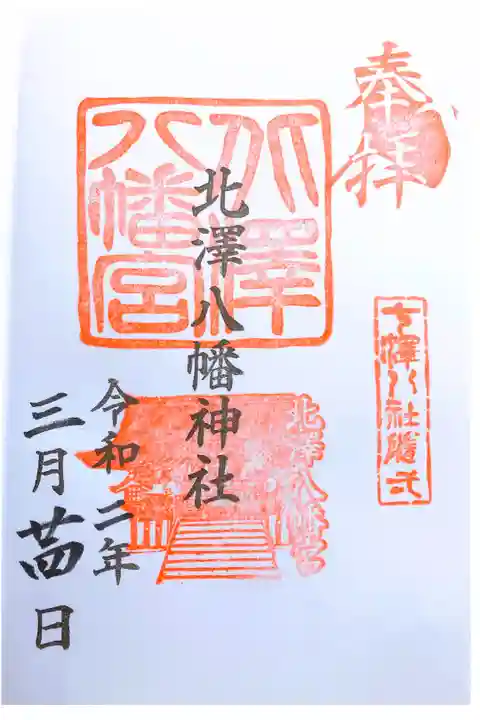 奉拝
七澤八社隨弌
北澤
八幡宮
北澤八幡神社
北澤八幡宮
令和二年
三月廿四日